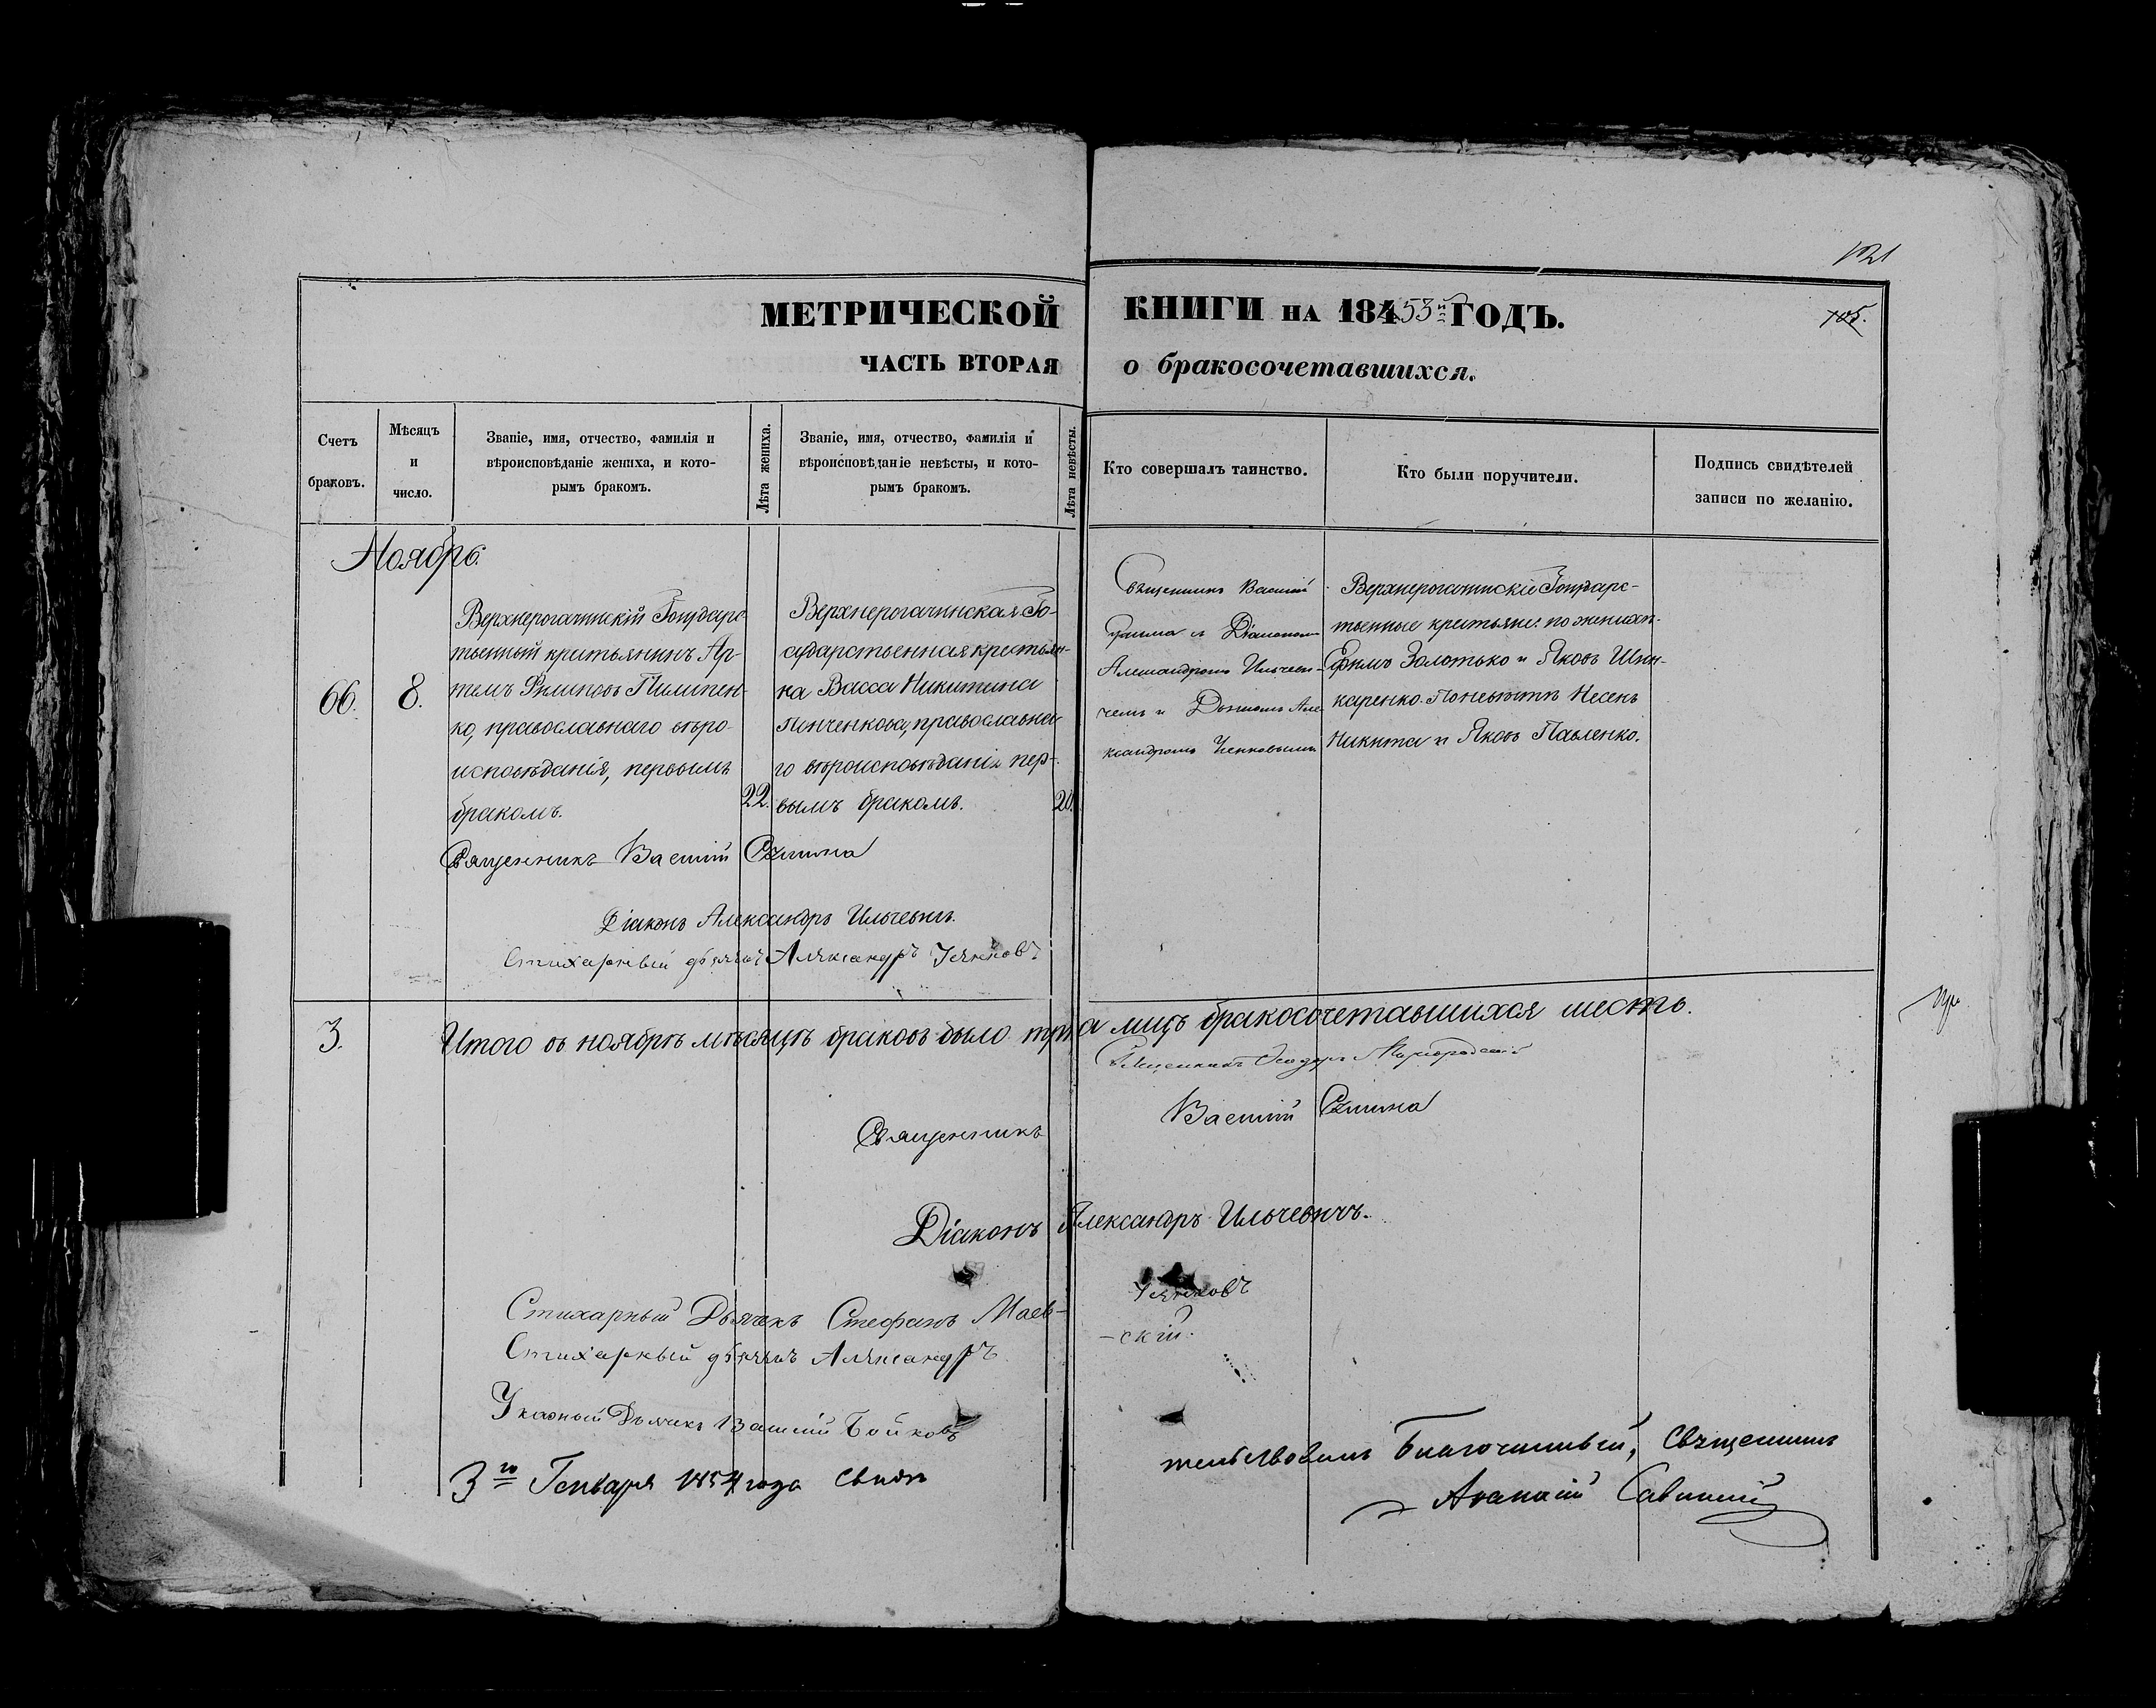 121
МЕТРИЧЕСКОЙ КНИГИ НА 18453й ГОДЪ.
105.
ЧАСТЬ ВТОРАЯ о бракосочетавшихся.
Счетъ браковъ.
Мѣсяцъ и число.
Званіе, имя, отчество, фамилія и вѣроисповѣданіе жениха, и которымъ бракомъ.
Лѣта жениха.
Званіе, имя, отчество, фамилія и вѣроисповѣданіе невѣсты, и которымъ бракомъ.
Лѣта невѣсты.
Кто совершалъ таинство.
Кто были поручители.
Подпись свидѣтелей записи по желанію.
Ноябрь.
66.
8.
Верхнерогачинскій Государс-
твенный крестьянинъ Ар-
темъ Филиповъ Пилипен-
ко, православнаго вѣро-
исповѣданія, первымъ
бракомъ.
22.
Верхнерогачинская Го-
сударственная крестьян-
ка Васса Никитина
Пинченкова, православна-
го вѣроисповѣданія пер-
вымъ бракомъ.
20.
Священникъ Василій
и Діакономъ
Александромъ Ильчеви-
чемъ и Дьячкомъ Але
ксандромъ
Верхнерогачинскіе Государс-
твенные крестьяне: по женихѣ-
Золотько и Яковъ Шин-
каренко. По невѣстѣ Несенъ
Никита и Яковъ Павленко.
Священникъ Василій
Діаконъ Александръ Ильчевичъ.
Стихарный дьячокъ Александръ
3.
Итого въ ноябрѣ мѣсяцѣ браковъ было три а лицъ бракосочетавшихся шесть.
Священникъ Ѳеодоръ
Священникъ Василій
Діаконъ Александръ Ильчевичъ.
Стихарный Дьячекъ Стефанъ Маев-
-скій.
Стихарный дьячокъ Александръ
Указный Дьячекъ Василій Бойковъ
3го Генваря 1854 года свидѣ
тельствовалъ Благочинный, Священникъ
Савицкій